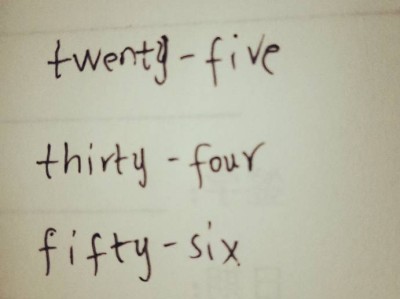 twenty-five
thirty-four
fifty-six